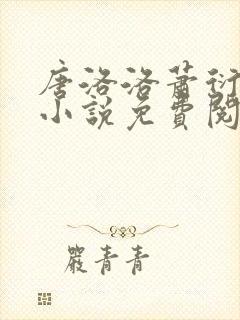 唐洛洛萧衍
小说免费阅
嚴青青